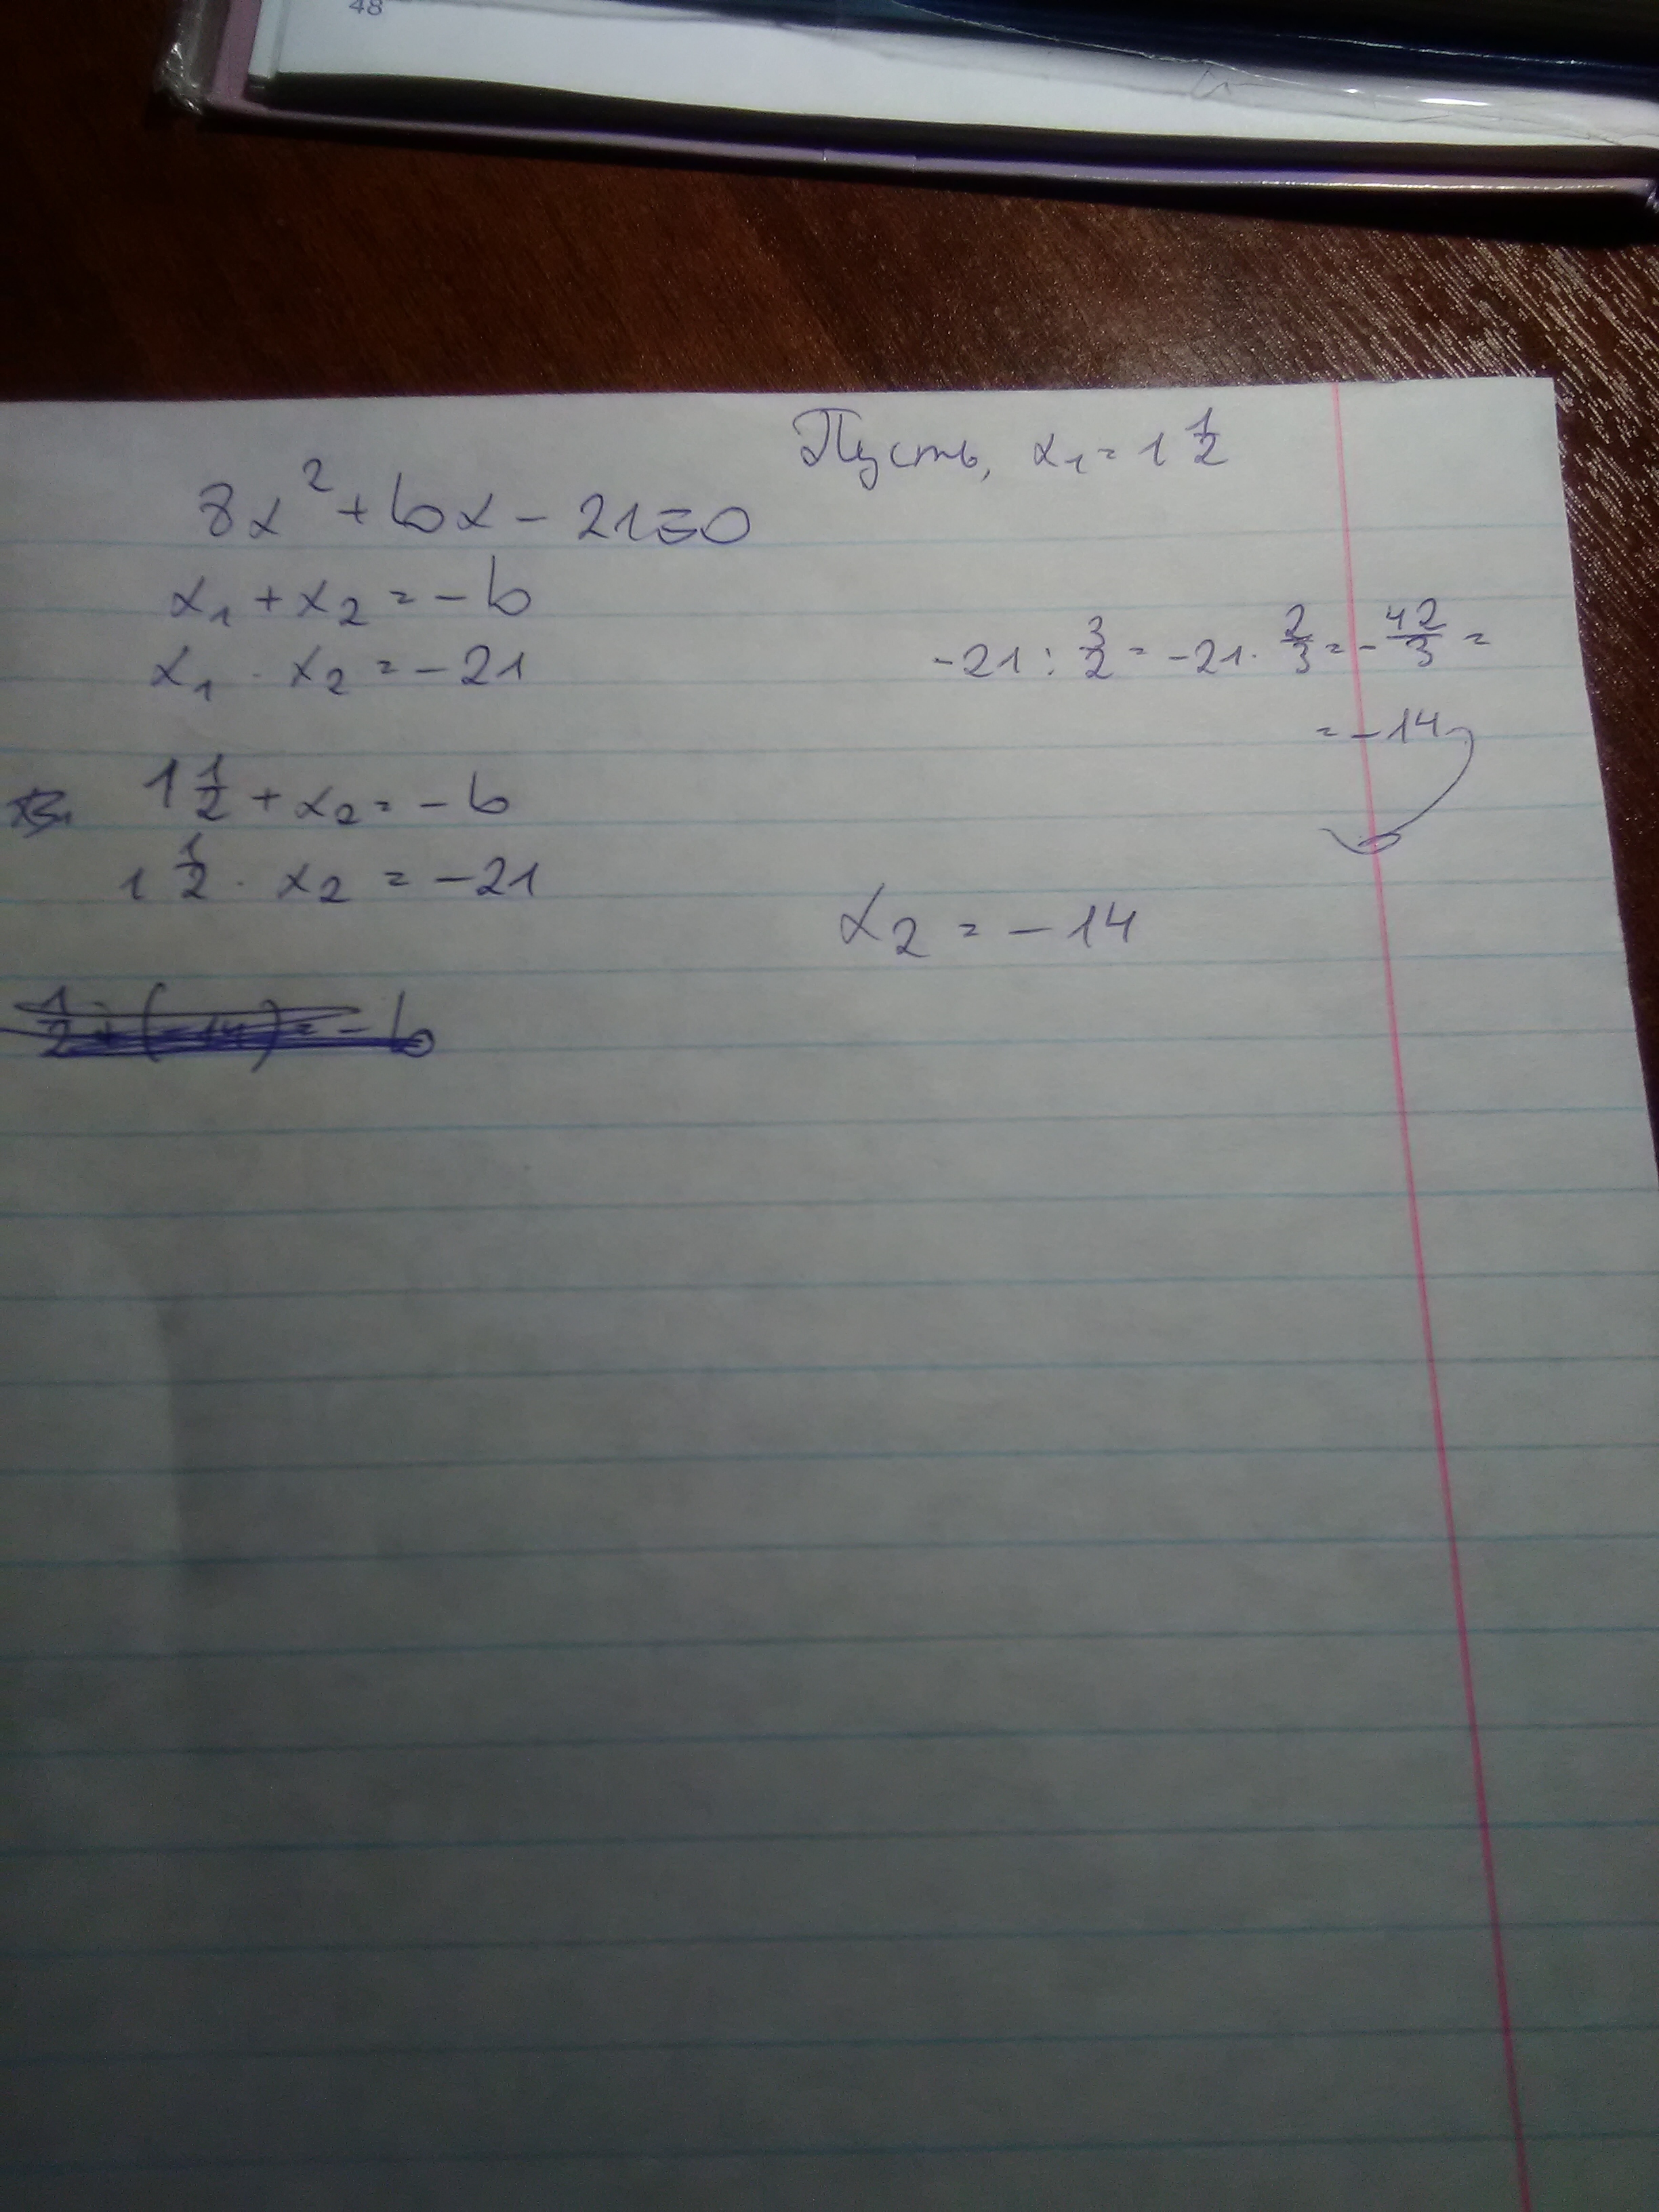 48
Пусть, x₁ = 1 1/2
8x² + bx - 21 = 0
x₁ + x₂ = - b
x₁ · x₂ = - 21
-21 : 3/2 = -21 · 2/3 = - 42/3 =
= - 14
1 1/2 + x₂ = - b
1 1/2 · x₂ = - 21
x₂ = - 14